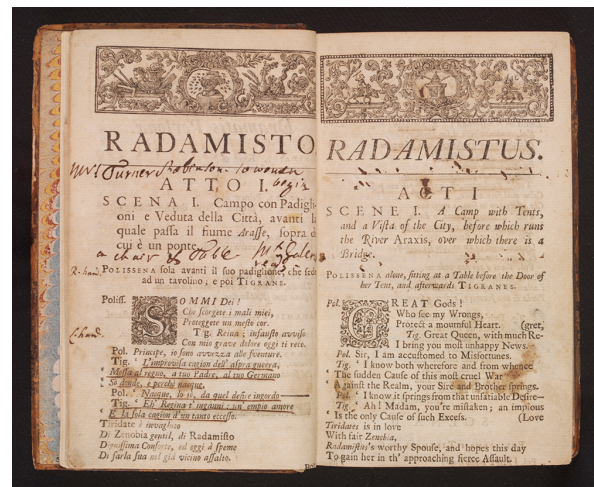 RADAMISTO
Mrs Turner Robinson to women
begin
ATTO I.
SCENA I. Campo con Padigli-
oni e Veduta della Città, avanti la
quale passa il fiume Arasse, sopra d
cui è un ponte.
a chair & Table
ready
R. hand.
POLISSENA sola avanti il suo padiglione, che sede
ad un tavolino; e poi TIGRANE.
Poliss. SOMMI Dei!
Che scorgete i mali miei,
Proteggete un mesto cor.
Tig. Reina; infausto avviso
Con mio grave dolore oggi ti reco.
Pol. Principe, io sono avvezza alle sventure.
Tig. L'improvisa cagion dell' aspra guerra,
Mossa al regno, a tuo Padre, al tuo Germano
So donde, e perchè nacque.
Pol. Nacque, lo so, da quel desire ingordo
Tig. Eh! Regina t'inganni: un empio amore
E la sola cagion d'un tanto eccesso.
Tiridate è invaghito
Di Zenobia gentil, di Radamisto
Dignissima Consorte, ed oggi è speme
Di farla sua nel già vicino assalto.
RADAMISTUS.
ACT I
SCENE I. A Camp with Tents,
and a Vista of the City, before which runs
the River Araxis, over which there is a
Bridge.
POLISSENA alone, sitting at a Table before the Door of
her Tent, and afterwards TIGRANES.
Pol. GREAT Gods!
Who see my Wrongs,
Protect a mournful Heart. (gret,
Tig. Great Queen, with much Re-
I bring you most unhappy News.
Pol. Sir, I am accustomed to Misfortunes.
Tig. ' I know both wherefore and from whence
' The sudden Cause of this most cruel War
' Against the Realm, your Sire and Brother springs.
Pol. ' I know it springs from that unsatiable Desire—
Tig. ' Ah! Madam, you're mistaken; an impious
' Is the only Cause of such Excess. (Love
Tiridates is in love
With fair Zenobia,
Radamistus's worthy Spouse, and hopes this day
To gain her in th' approaching fierce Assault.